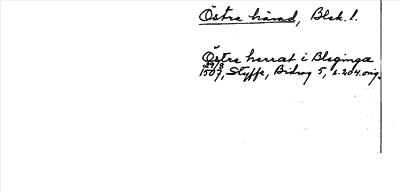 Östra härad, Blek. l.
Östra herrat i Bleginga
29/8
1507, Styffe, Bidrag 5, s. 204. orig.